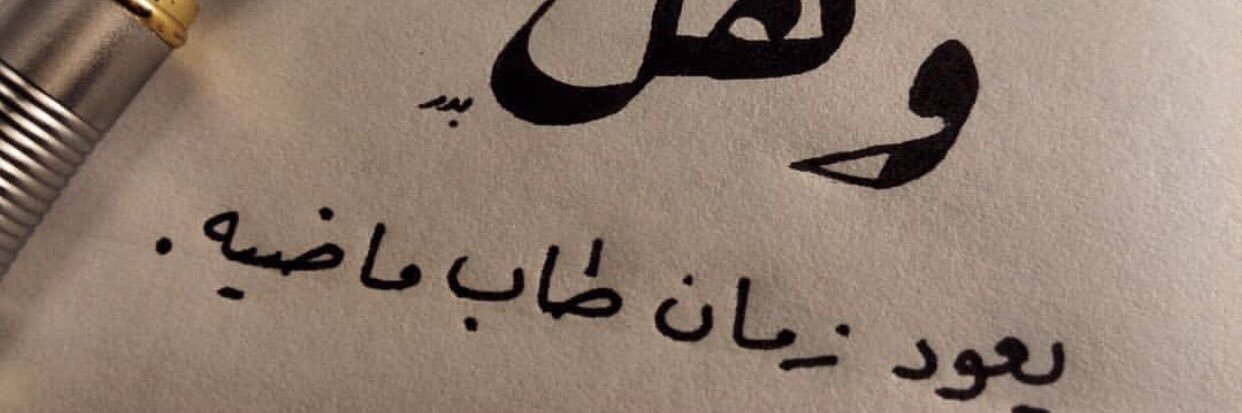 وهل
بدر
يعود زمان طاب ماضيه .